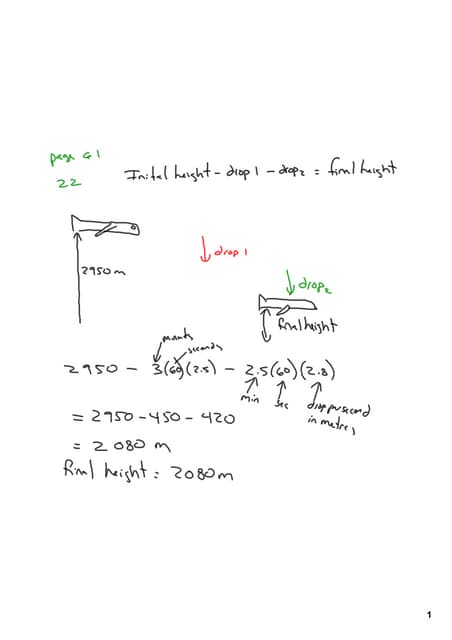 page 61
22
Initial height - drop 1 - drop 2 = final height
2950 m
drop 1
drop 2
final height
minutes
seconds
2950 - 3(60)(2.5) - 2.5(60)(2.8)
min
sec
drop per second
in metres
= 2950 - 450 - 420
= 2080 m
final height = 2080 m
1